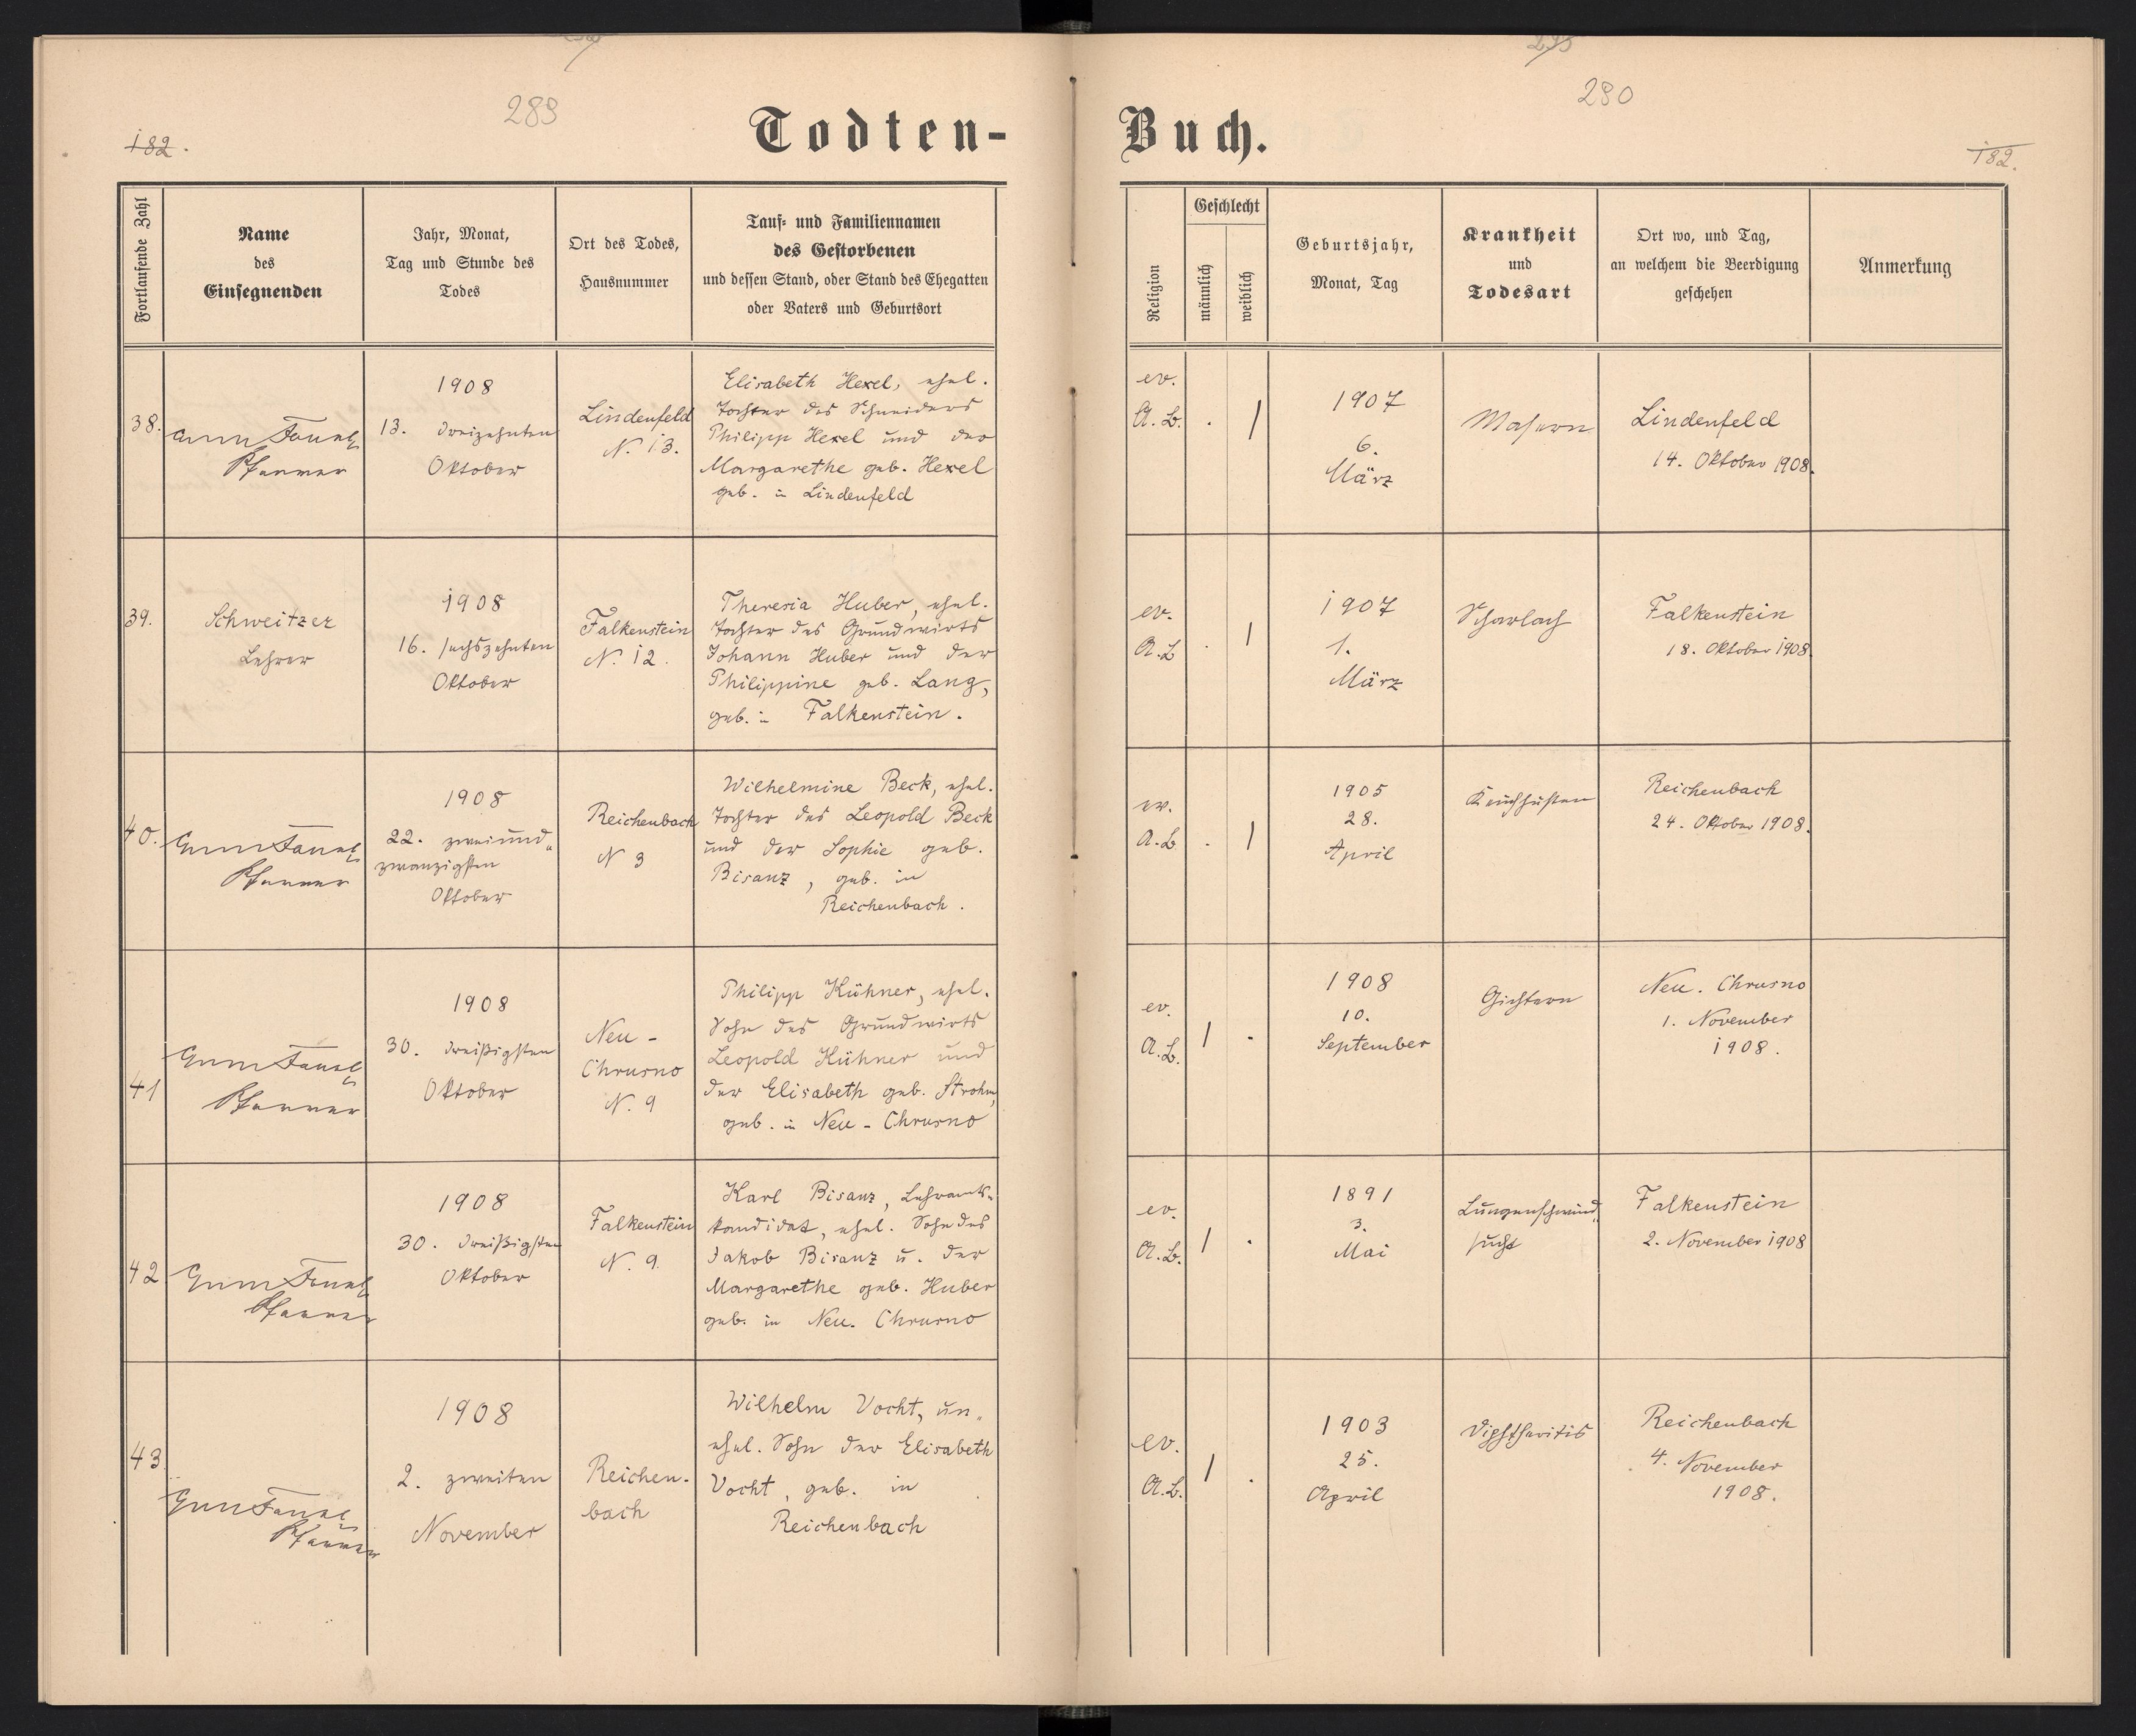 289
182.
Todten-
Fortlaufende Zahl
Name
des
Einsegnenden
Jahr, Monat,
Tag und Stunde des
Todes
Ort des Todes,
Hausnummer
Tauf- und Familiennamen
des Gestorbenen
und dessen Stand, oder Stand des Ehegatten
oder Vaters und Geburtsort
38.
Pfarrer
1908
13. dreizehnten
Oktober
Lindenfeld
N. 13.
Elisabeth Hexel, ehel.
Tochter des Schneiders
Philipp Hexel und der
Margarethe geb. Hexel
geb. in Lindenfeld
39.
Schweitzer
Lehrer
1908
16. sechszehnten
Oktober
Falkenstein
N. 12.
Theresia Huber, ehel.
Tochter des Grundwirts
Johann Huber und der
Philippine geb. Lang,
geb. in Falkenstein.
40.
Pfarrer
1908
22. zweiund„
zwanzigsten
Oktober
Reichenbach
N 3
Wilhelmine Beck, ehel.
Tochter des Leopold Beck
und der Sophie geb.
Bisanz, geb. in
Reichenbach.
41
Pfarrer
1908
30. dreißigsten
Oktober
Neu-
Chrusno
N. 9
Philipp Kühner, ehel.
Sohn des Grundwirts
Leopold Kühner und
der Elisabeth geb. Strohm,
geb. in Neu-Chrusno
42
Pfarrer
1908
30. dreißigsten
Oktober
Falkenstein
N. 9.
Karl Bisanz, Lehramts„
kandidat, ehel. Sohn des
Jakob Bisanz u. der
Margarethe geb. Huber
geb. in Neu. Chrusno
43.
Pfarrer
1908
2. zweiten
November
Reichen-
bach
Wilhelm Vocht, un„
ehel. Sohn der Elisabeth
Vocht, geb. in
Reichenbach
290
Buch.
182.
Religion
Geschlecht
männlich
weiblich
Geburtsjahr,
Monat, Tag
Krankheit
und
Todesart
Ort wo, und Tag,
an welchem die Beerdigung
geschehen
Anmerkung
ev.
A. B. . 1
1907
6.
März
Masern
Lindenfeld
14. Oktober 1908.
ev.
A. B . 1
1907
1.
März
Scharlach
Falkenstein
18. Oktober 1908.
ev.
A. B . 1
1905
28.
April
Keuchhusten
Reichenbach
24. Oktober 1908.
ev.
A. B. 1 .
1908
10.
September
Gichtern
Neu. Chrusno
1. November
1908.
ev.
A. B. 1 .
1891
3.
Mai
Lungenschwind„
sucht
Falkenstein
2. November 1908
ev.
A. B. 1 .
1903
25.
April
Diphtheritis
Reichenbach
4. November
1908.